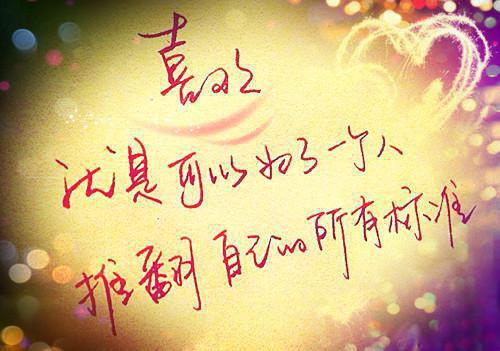 喜欢
就是可以为了一个人
推翻自己的所有标准